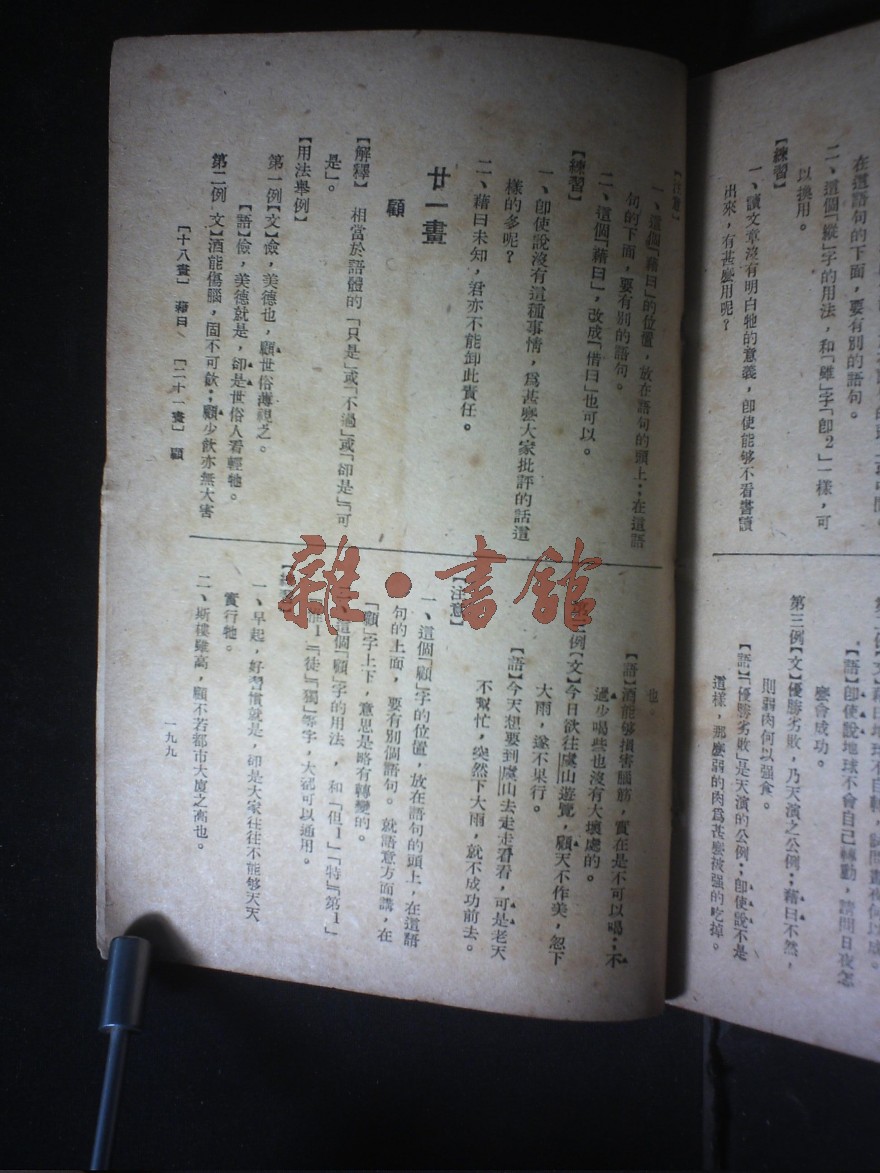 在這語句的下面，要有別的語句。
二、這個「縱」字的用法，和「雖」字「卽２」一樣，可
以換用。
【練習】
一、讀文章沒有明白牠的意義，卽使能够不看書讀
出來，有甚麽用呢？
【語】卽使說地球不會自己轉動，請問日夜怎
麽會成功。
第三例【文】優勝劣敗，乃天演之公例；藉曰不然，
則弱肉何以强食。
【語】「優勝劣敗」是天演的公例；卽使說不是
這樣，那麽弱的肉爲甚麽被强的吃掉。
【注意】
一、這個「藉曰」的位置，放在語句的頭上；在這語
句的下面，要有別的語句。
二、這個「藉曰」，改成「借曰」也可以。
【練習】
一、卽使說沒有這種事情，爲甚麽大家批評的話這
樣的多呢？
二、藉曰未知，君亦不能卸此責任。
廿一畫
顧
【解釋】　相當於語體的「只是」或「不過」或「卻是」「可
是」。
【用法舉例】
第一例【文】儉，美德也，顧世俗薄視之。
【語】儉，美德就是，卻是世俗人看輕牠。
第二例【文】酒能傷腦，固不可飲；顧少飲亦無大害
也。
【語】酒能够損害腦筋，實在是不可以喝；不
過少喝些也沒有大壞處的。
第三例【文】今日欲往虞山遊覽，顧天不作美，忽下
大雨，遂不果行。
【語】今天想要到虞山去走走看看，可是老天
不幫忙，突然下大雨，就不成功前去。
【注意】
一、這個「顧」字的位置，放在語句的頭上，在這語
句的上面，要有別個語句。就語意方面講，在
「顧」字上下，意思是略有轉變的。
二、這個「顧」字的用法，和「但１」「特」「第１」
「徒」「獨」等字，大都可以通用。
【練習】
一、早起，好習慣就是，卻是大家往往不能够天天
實行牠。
二、斯樓雖高，顧不若都市大廈之高也。
［十八畫］　藉曰、　［二十一畫］　顧
一九九
雜·書館